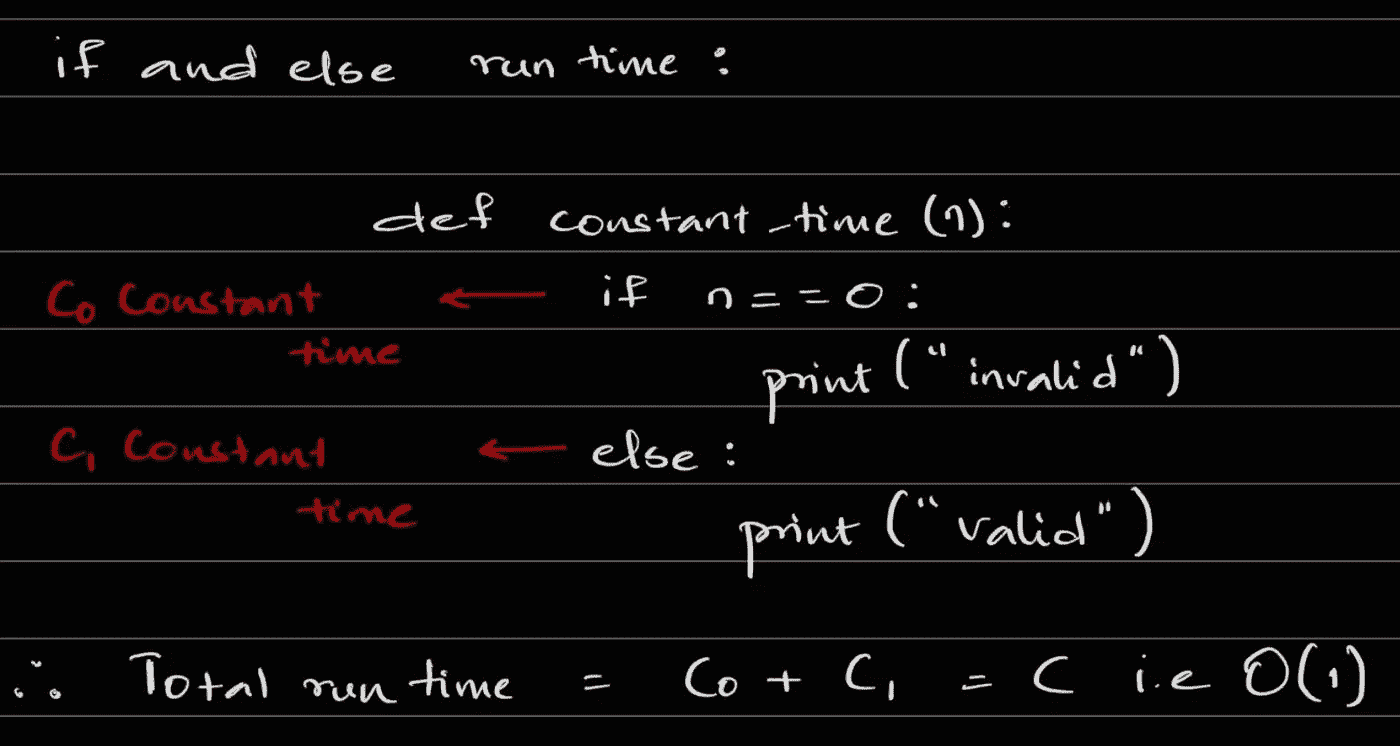 if and else run time :
def constant_time (n) :
C₀ Constant time ← if n == 0 :
print ("invalid")
C₁ Constant time ← else :
print ("valid")
∴ Total run time = C₀ + C₁ = C i.e O(1)